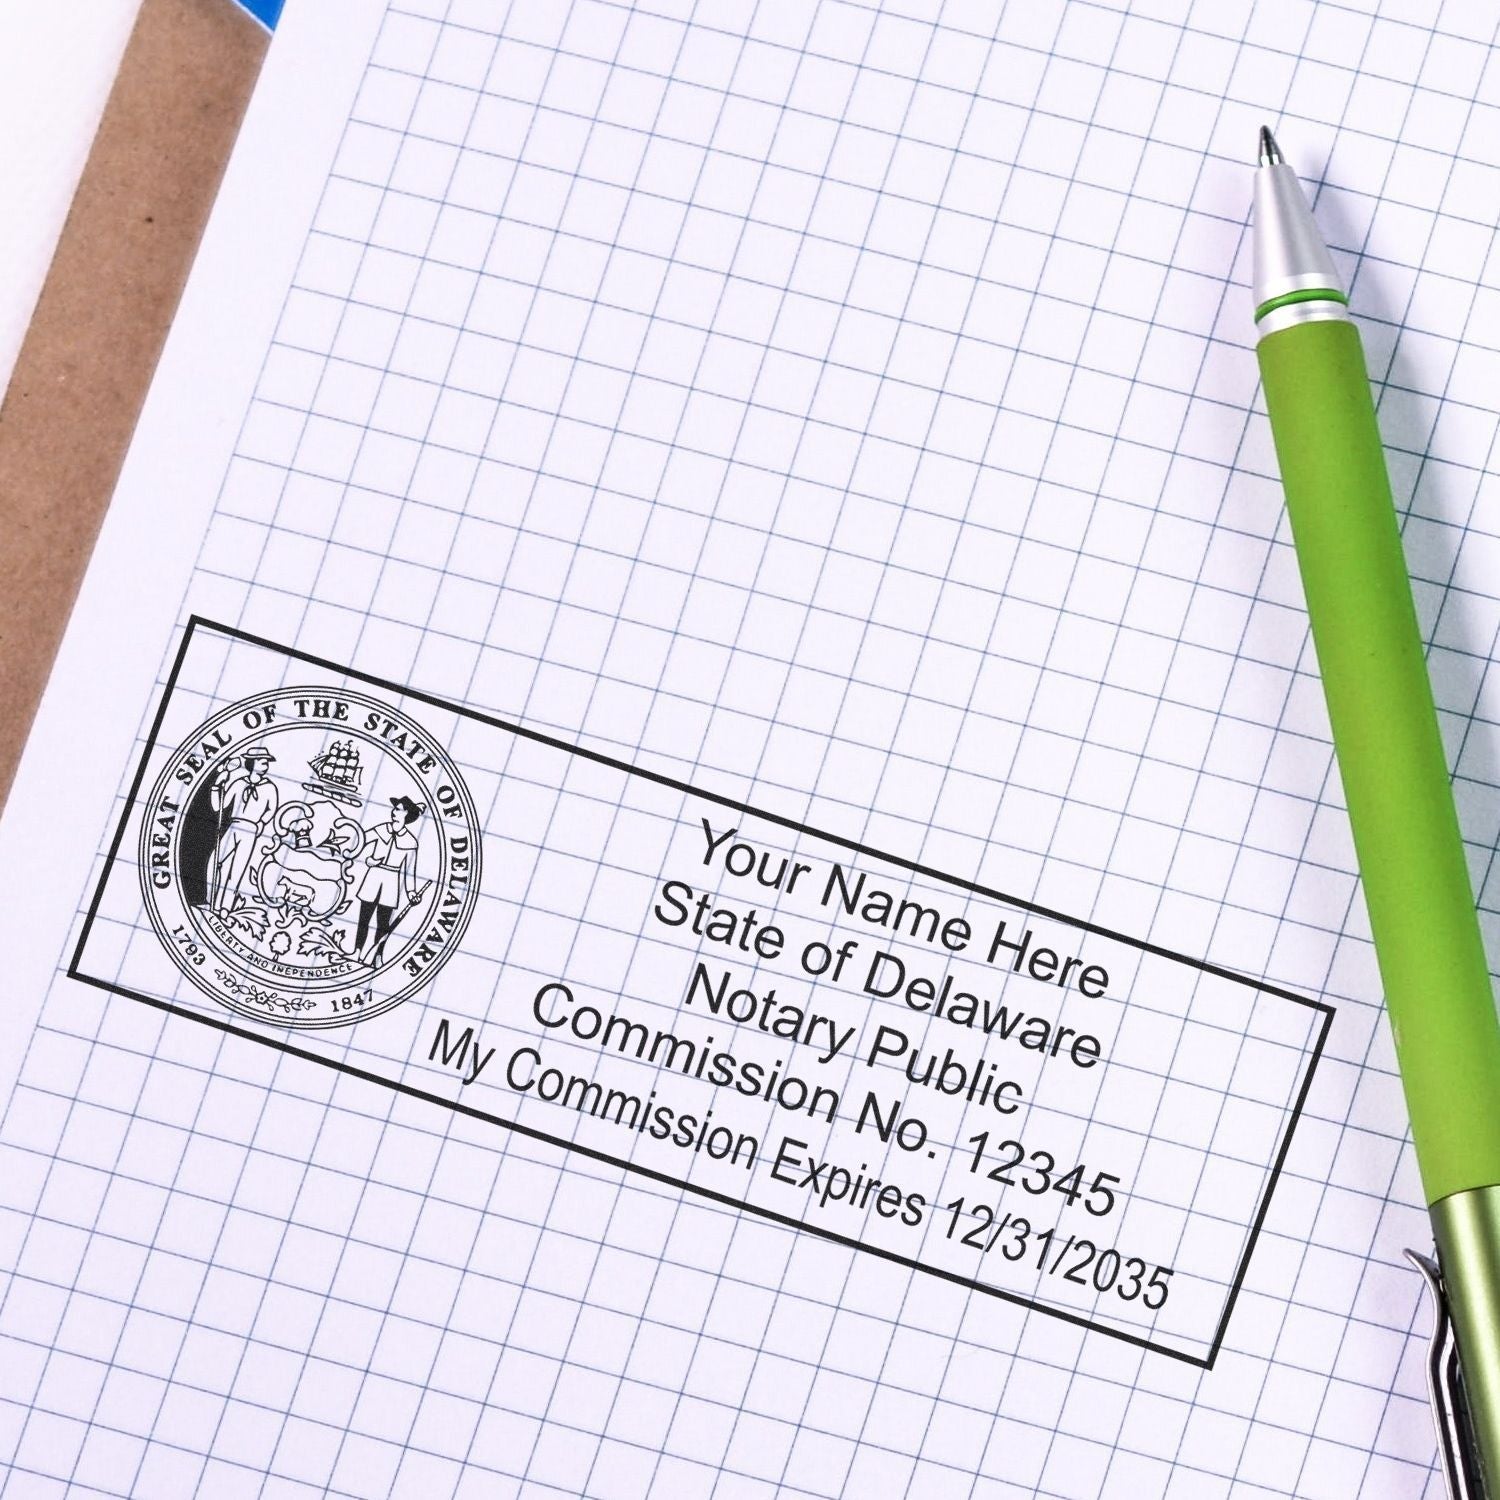 GREAT SEAL OF THE STATE OF DELAWARE
1793
LIBERTY AND INEPENDENCE
1847
Your Name Here
State of Delaware
Notary Public
Commission No. 12345
My Commission Expires 12/31/2035